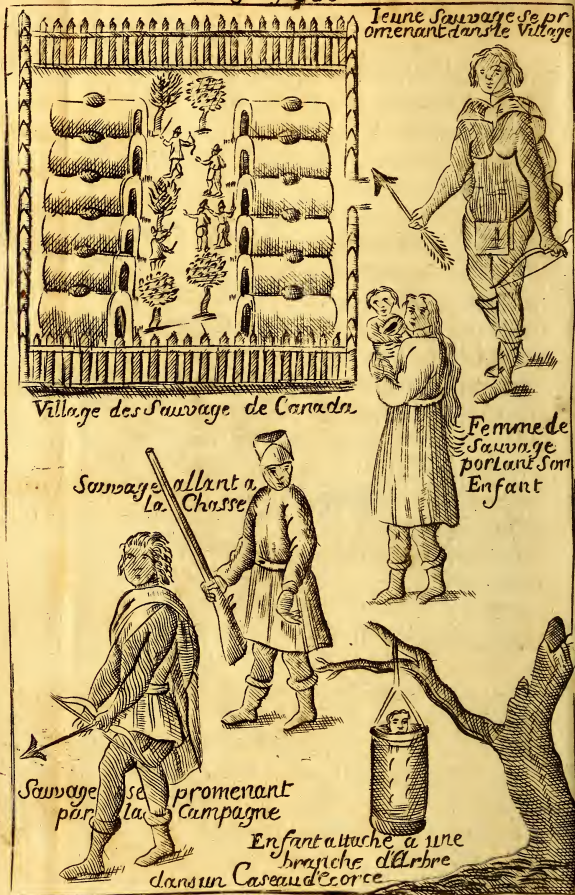 Ieune Sauvage se pr
omenant dans le Village
Village des Sauvage de Canada
Femme de
Sauvage
portant Son
Enfant
Sauvage allant a
La Chasse
Sauvage se promenant
par la Campagne
Enfant attaché a une
branche d'Arbre
dans un Caseau d'ecorce